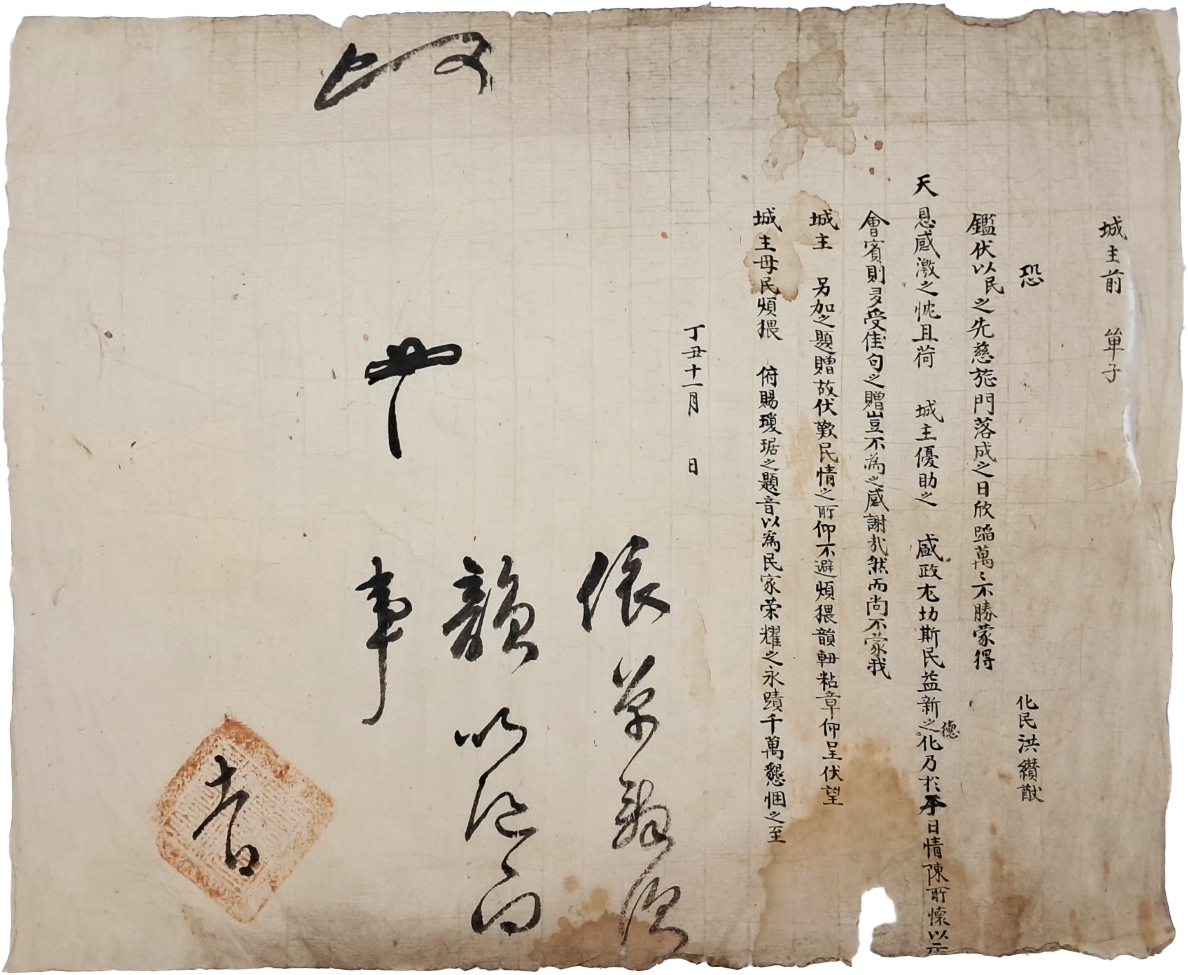 城主前 單子
恐
化民洪纘猷
鑑伏以民之先慈旌門落成之日欣蹈萬〻不勝蒙得
天
恩感激之忱且荷 城主優助之 盛政尤切斯民益新之化德乃於平日情陳所懷以示
會賓則多受佳句之贈豈不為之感謝哉然而尚不蒙我
城主 另加之題贈故伏歎民情之所仰不避煩猥韻軸粘章仰呈伏望
城主毋民煩猥 俯賜瓊琚之題音以為民家荣耀之永蹟千萬懇悃之至
丁丑十一月 日
依
韻以
事